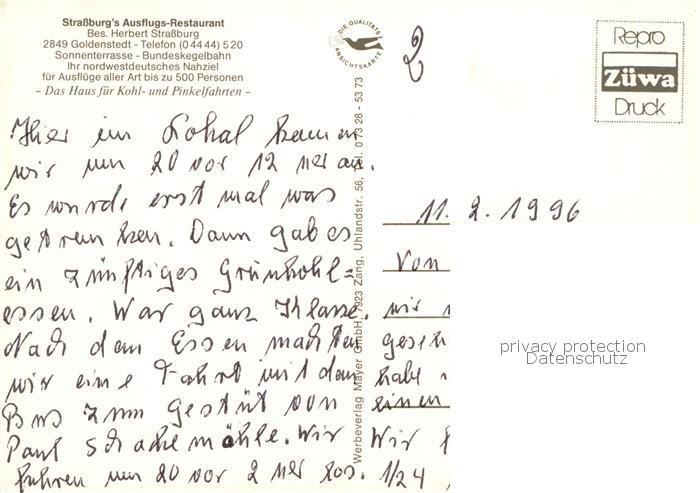 Straßburg's Ausflugs-Restaurant
Bes. Herbert Straßburg
2849 Goldenstedt - Telefon (0 44 44) 5 20
Sonnenterrasse - Bundeskegelbahn
Ihr nordwestdeutsches Nahziel
für Ausflüge aller Art bis zu 500 Personen
- Das Haus für Kohl- und Pinkelfahrten -
DIE QUALITÄTS
ANSICHTSKARTE
2
Repro
Züwa
Druck
Hier im Lokal kamen
wir um 20 vor 12 Uhr an.
Es wurde erst mal was
getrunken. Dann gab es
ein zünftiges Grünkohl=
essen. War ganz Klasse.
Nach dem Essen machten
wir eine Fahrt mit dem
Bus zum Gestüt von
Paul Schockemöhle. Wir
fuhren um 20 vor 2 Uhr los.
Werbeverlag Mayer GmbH, 7923 Zang, Uhlandstr. 56, Tel. 0 73 28 - 53 73
11. 2. 1996
Von
wir
gesch
habe
einen
Wir
1/24
privacy protection
Datenschutz